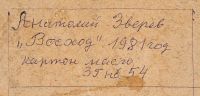 Анатолий Зверев
"Восход" 1981 год
картон масло
35 на 54